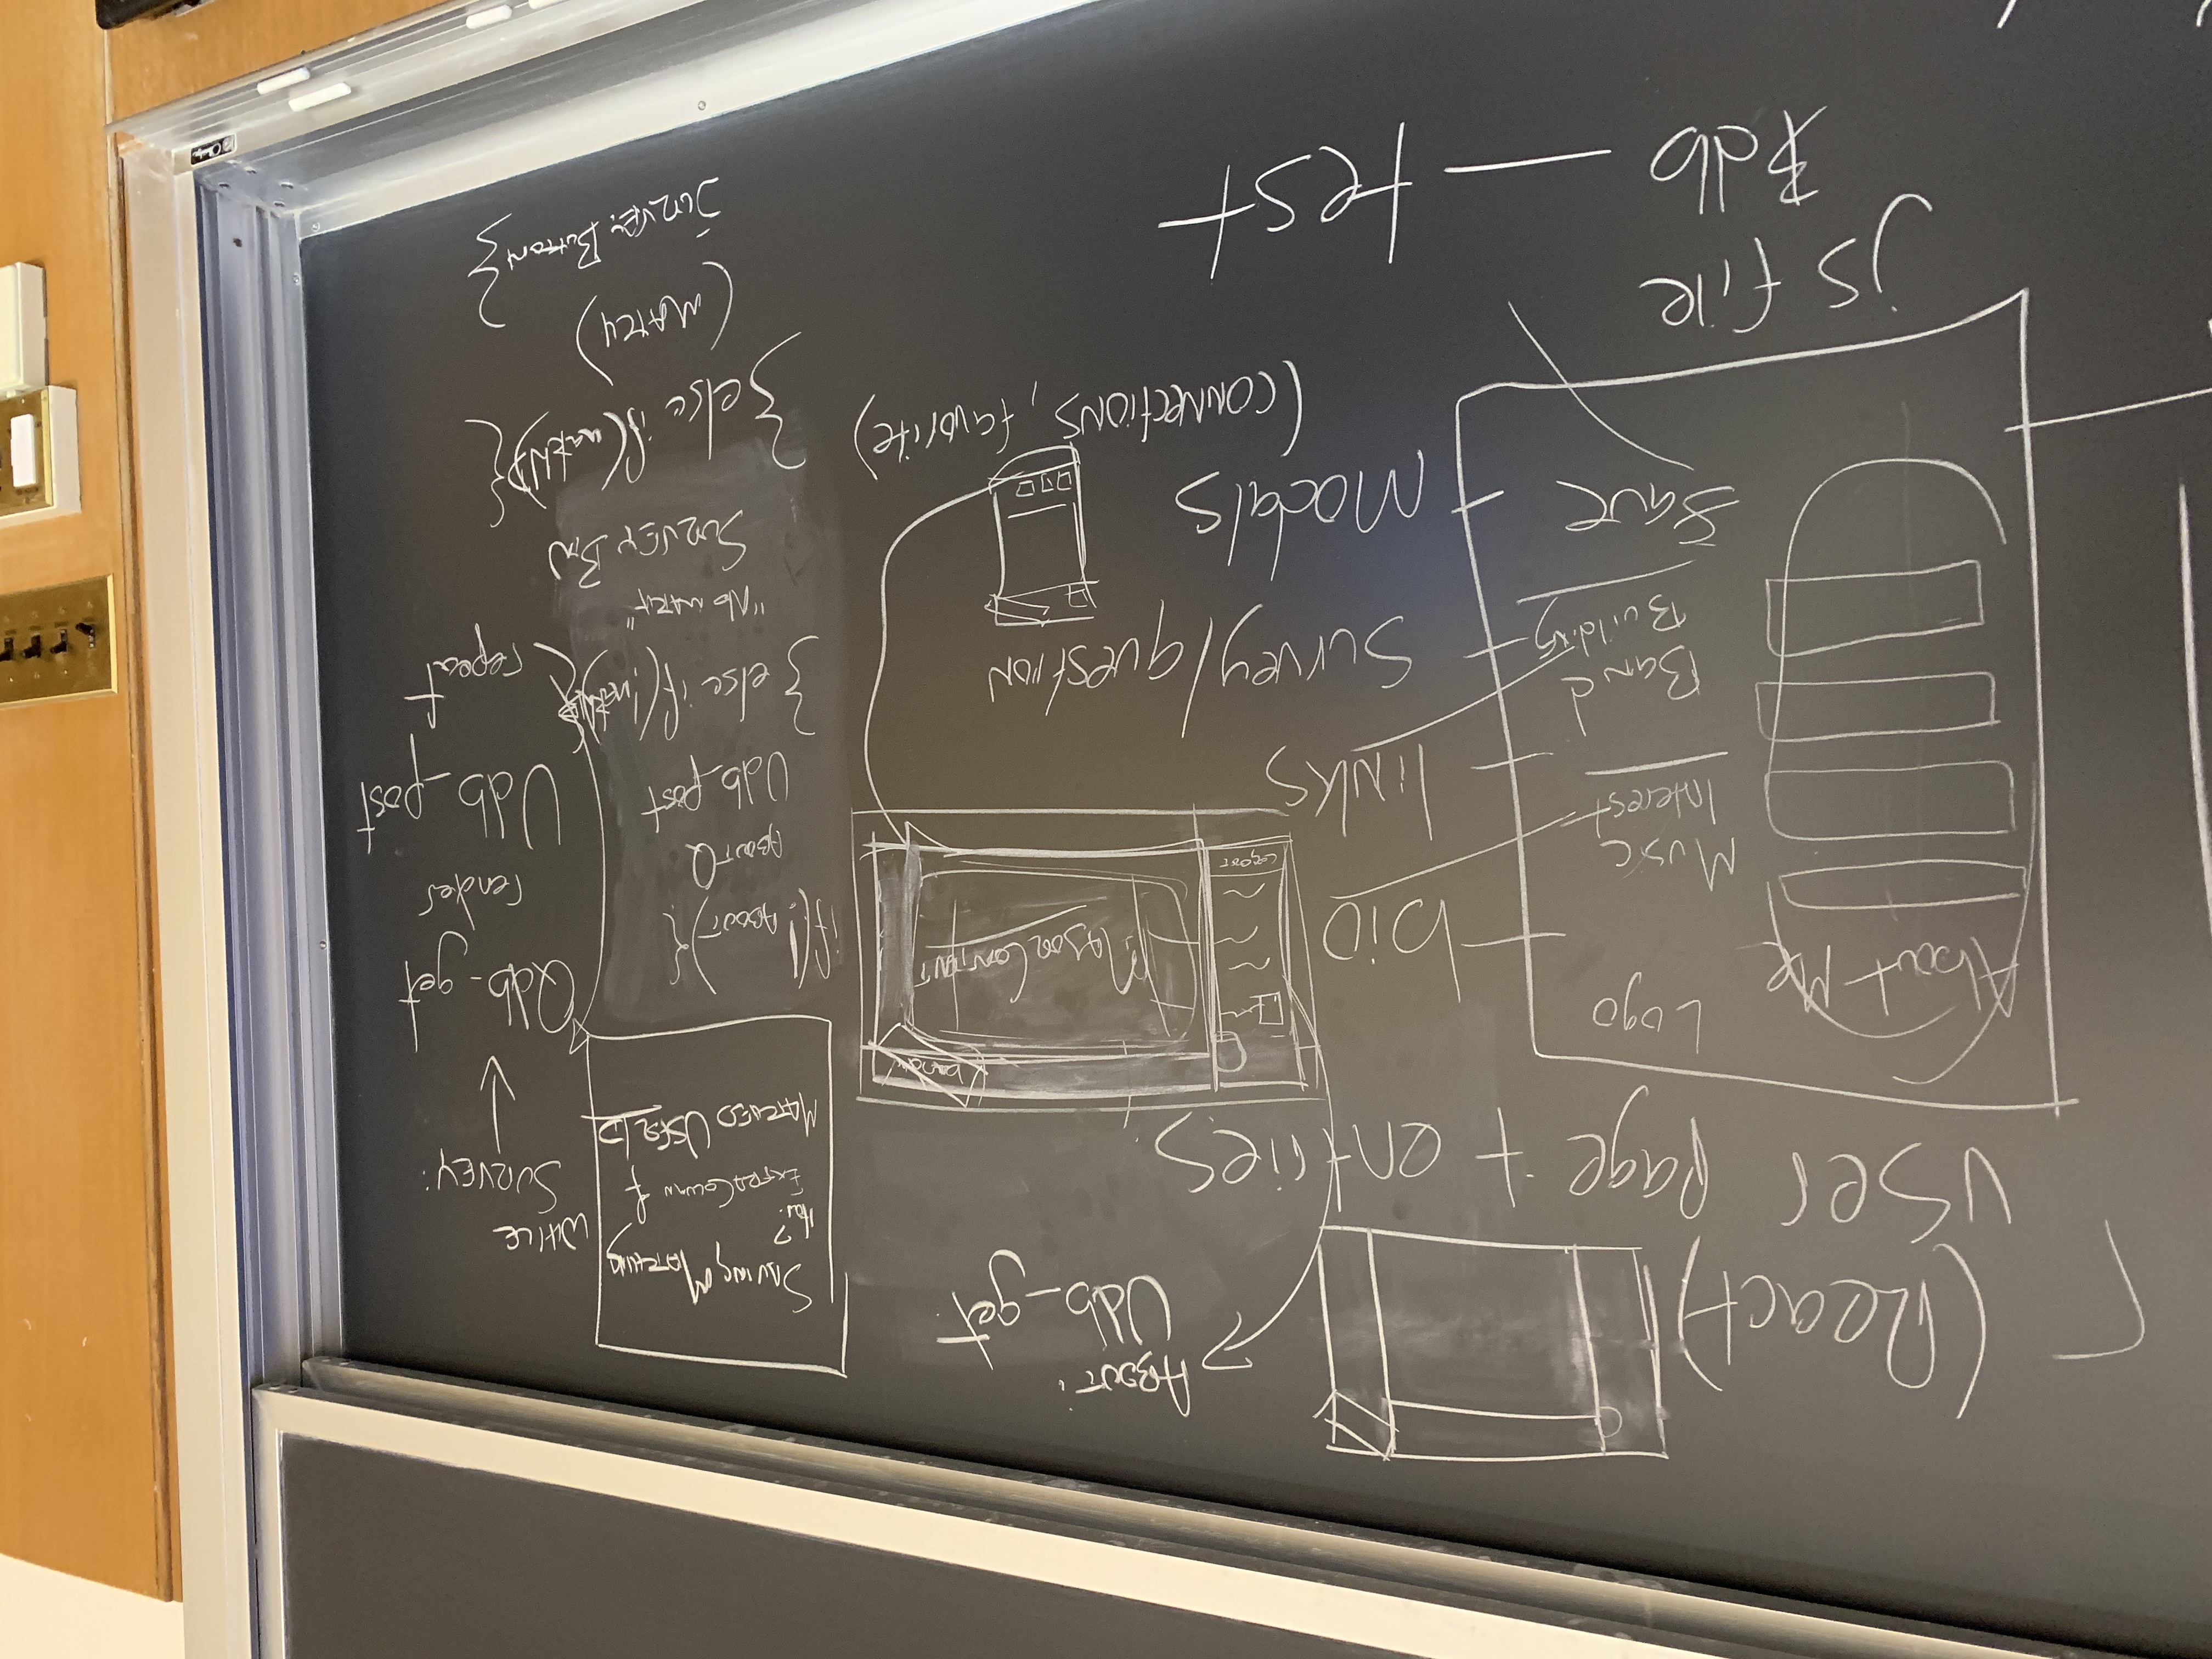 (React)
user page + entries
About Me
Logo
Music
Interest
Band
Building
Save
js file
$db — test
bio
links
survey/question
modals
(connections, favorite)
About:
Udb_get
band
Major Content
Logout
Saving Matching
How?
Extra Column of
Matched User ID
if(! About){
About Q
Udb_post
} else if(!matchID){
"No match"
Survey Btn
} else if(matchID){
(Match)
Survey Button}
While
Survey:
Qdb_get
render
Udb_post
repeat